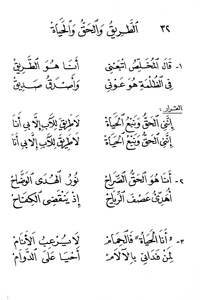 ٣٢ الطَّرِيقُ وَالْحَقُّ وَالْحَيَاةُ
١- قَالَ الْمُخَلِّصُ اتْبَعْنِي أَنَا هُوَ الطَّرِيقْ
فِي الظُّلْمَةِ هُوَ عَوْنِي وَأَصْدَقُ صَدِيقْ
القرار:
إِنَّنِي الْحَقُّ وَنَبْعُ الْحَيَاةْ لاَ طَرِيقَ لِلآبِ إِلاَّ بِي أَنَا
إِنَّنِي الْحَقُّ وَنَبْعُ الْحَيَاةْ لاَ طَرِيقَ لِلآبِ إِلاَّ بِي أَنَا
٢- أَنَا هُوَ الْحَقُّ الصُّرَاحْ نُورُ الْهُدَى الْوَضَّاحْ
أُهْدِيَ عَصْفَ الرِّيَاحْ إِذْ يَنْقَضِي الْكِفَاحْ
٣- أَنَا الْحَيَاةُ فَالْحِمَامْ لاَ يُرْعِبُ الأَنَامْ
مَنْ فَدَانِي بِالآلاَمْ أَحْيَا عَلَى الدَّوَامْ